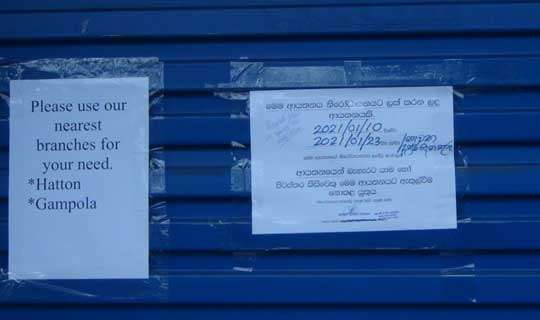 Please use our
nearest
branches for
your need.
*Hatton
*Gampola
මෙම ආයතනය නිරෝධායනයට ලක් කරන ලද
ආයතනයකි.
2021/01/10
2021/01/23
ආයතනයෙන් බැහැරට යාම හෝ
පිටස්තර කිසිවෙකු මෙම ආයතනයට ඇතුල්වීම
නොකළ යුතුය.